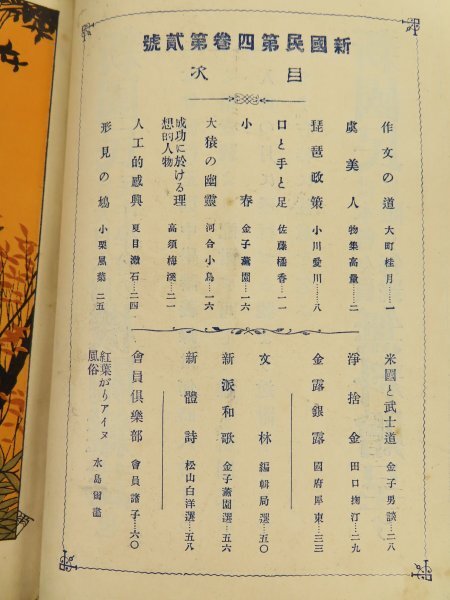 新國民第四卷第貳號
目次
作文の道 大町桂月……一
虞美人 物集高量……二
琵琶政策 小川愛川……八
口と手と足 佐藤橘香……一一
小春 金子薫園……一六
大猿の幽靈 河合小鳥……一六
成功に於ける理想的人物 高須梅溪……二一
人工的感興 夏目漱石……二四
形見の鳩 小栗風葉……二五
米國と武士道 金子男談……二八
淨捨金 田口掬汀……二九
金露銀露 國府犀東……三三
文林 編輯局選……五〇
新派和歌 金子薫園選……五六
新體詩 松山白洋選……五八
會員俱樂部 會員諸子……六〇
紅葉がりアイヌ風俗 水島爾